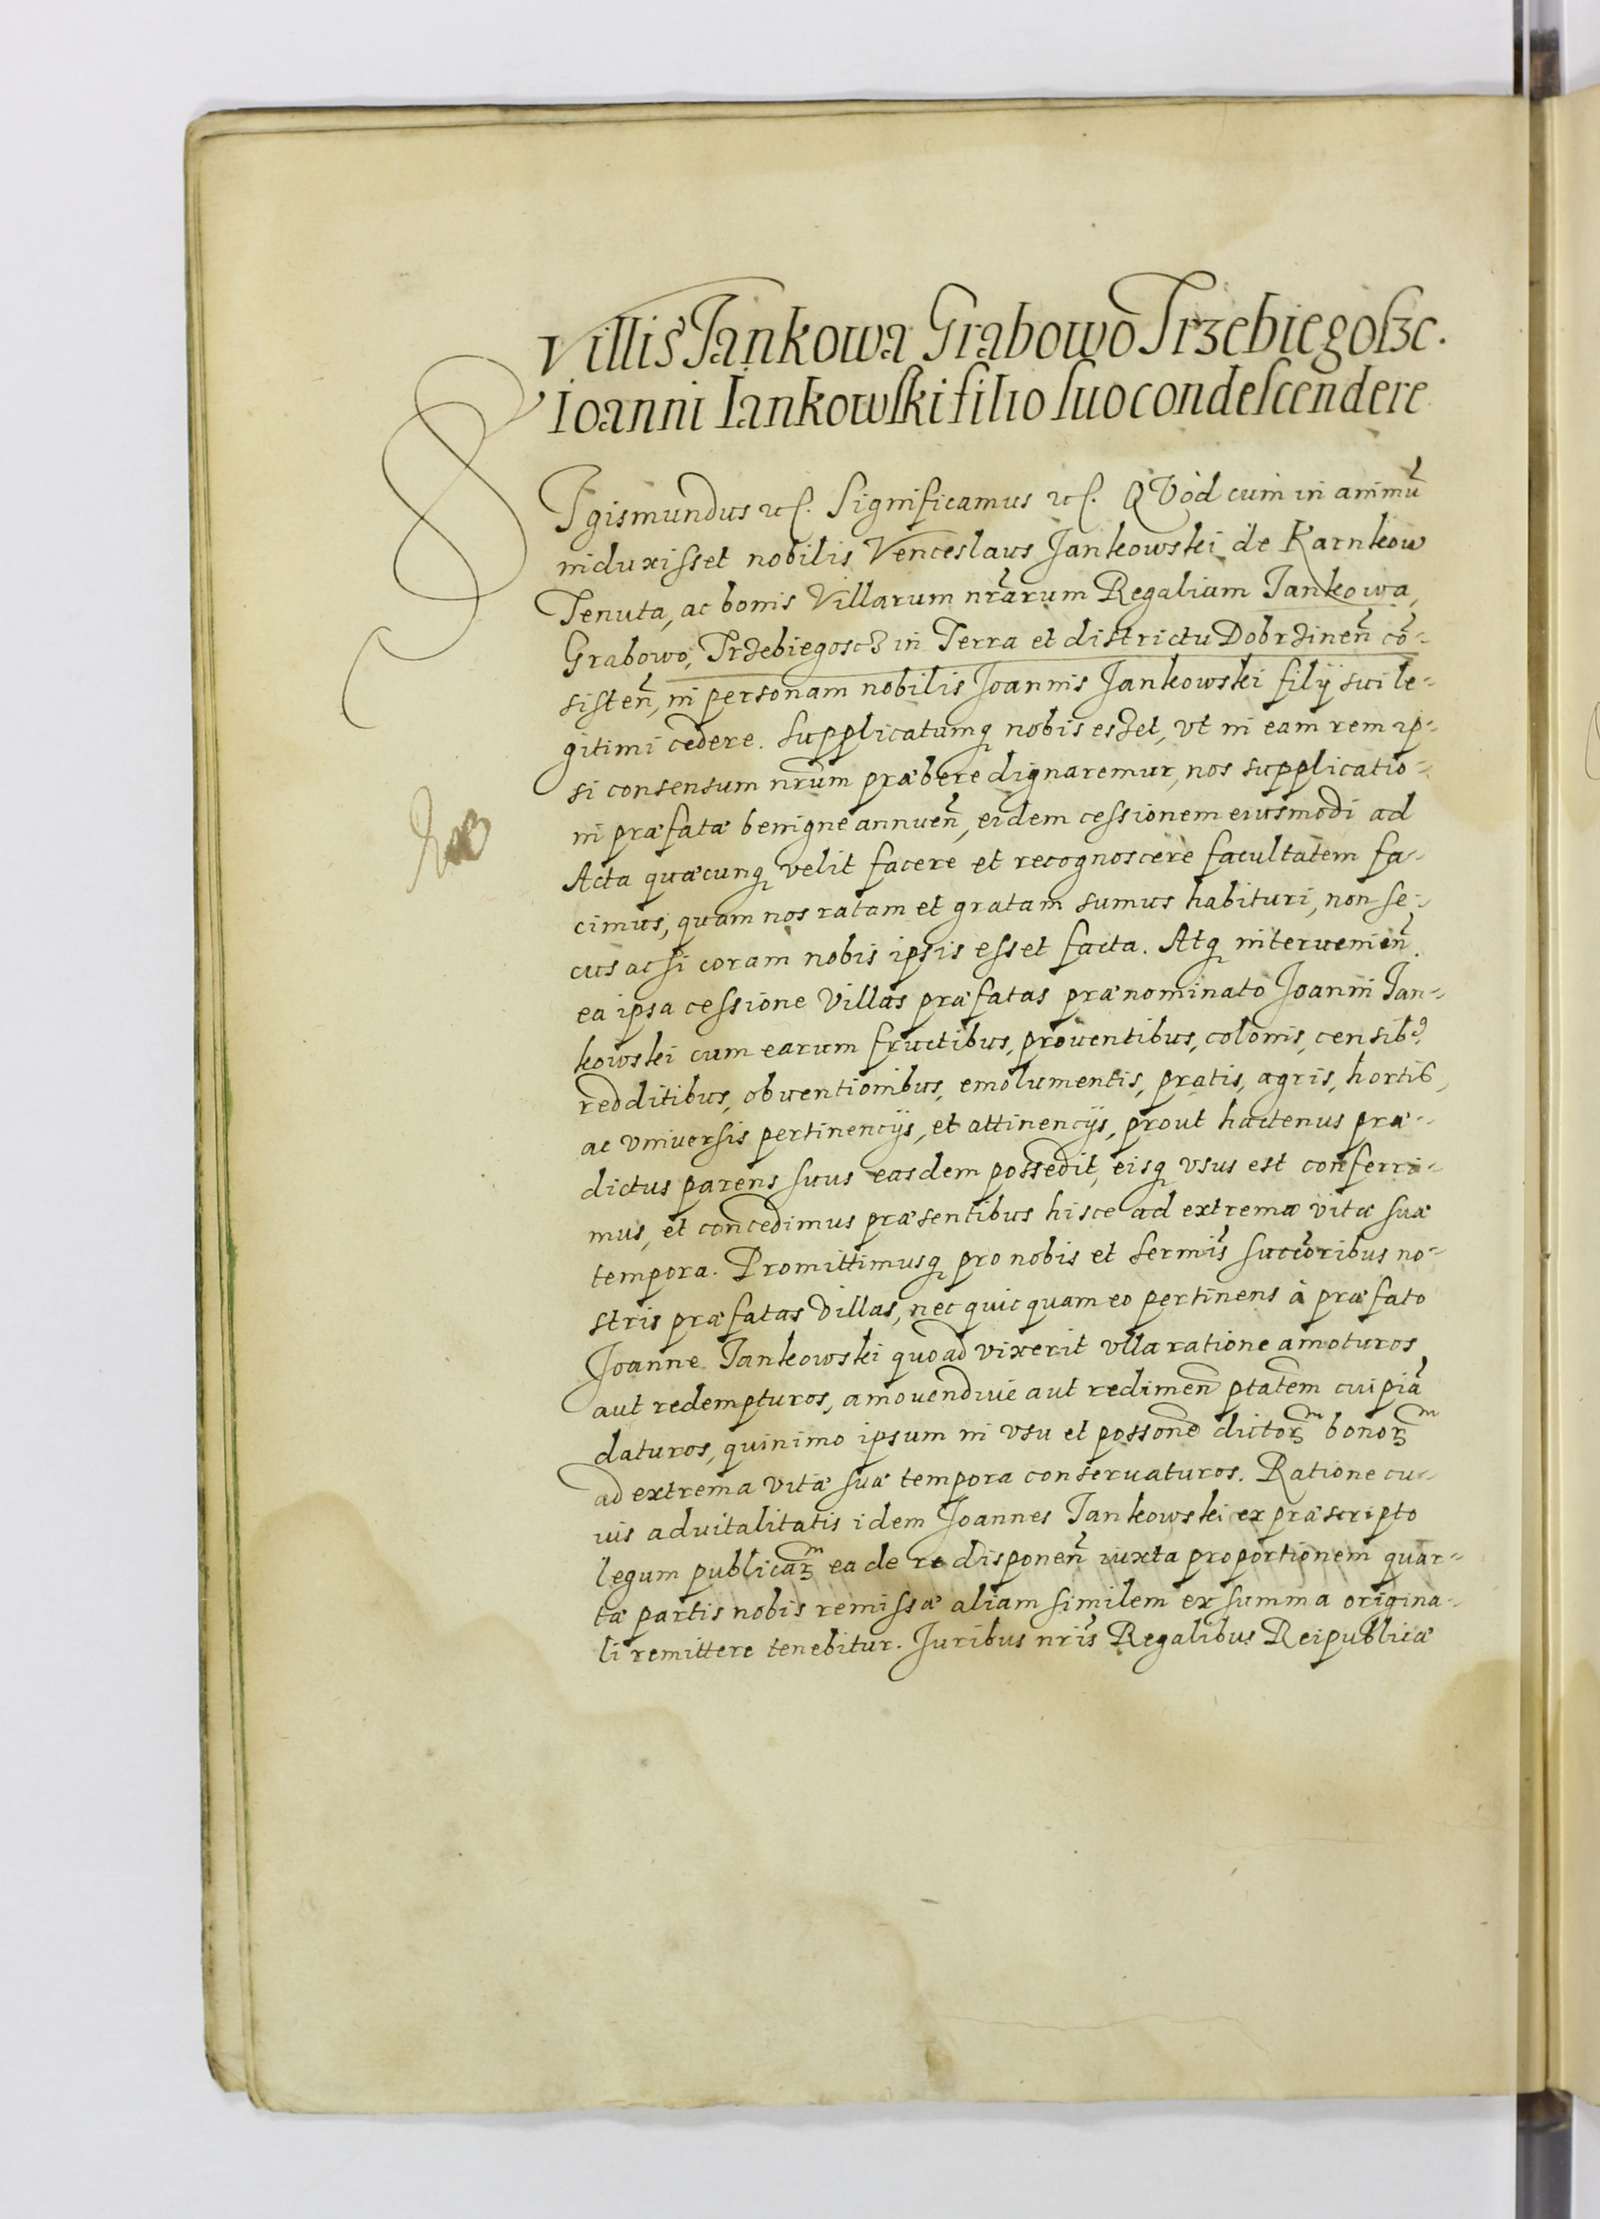 Villis Jankowa Grabowo Trzebiegoſzc.
Ioanni Iankowſki filio ſuo condeſcendere
SIgismundus ꝛcſ. Significamus ꝛcſ. QVòd cum in animũ
induxiſset nobilis Venceslaus Jankowski de Karnkow
Tenuta, ac bonis Villarum nr̃arum Regalium Jankowa,
Grabowo, Trzebiegoscz in Terra et districtu Dobrzineñ cõ-
sisteñ, in personam nobilis Joannis Jankowski filij sui le-
gitimi cedere. Supplicatumq nobis esset, vt in eam rem ip-
si consensum nr̃um præbere dignaremur, nos supplicatio-
ni præfatæ benigne annueñ, eidem ceſsionem eiusmodi ad
Acta quæcunq velit facere et recognoscere facultatem fa-
cimus, quam nos ratam et gratam sumus habituri, non se-
cus ac si coram nobis ipsis eſset facta. Atq intervenieñ
ea ipsa ceſsione Villas præfatas prænominato Joanni Jan-
kowski cum earum fructibus, prouentibus, colonis, censibꝰ
redditibus, obuentionibus, emolumentis, pratis, agris, hortis,
ac vniuersis pertinencijs, et attinencijs, prout hactenus præ-
dictus parens suus easdem poſsedit, eisq vsus est conferri-
mus, et concedimus præsentibus hisce ad extrema vitæ suæ
tempora. Promittimusq pro nobis et Sermis̃ succoribus no-
stris præfatas Villas, nec quicquam eo pertinens à præfato
Joanne Jankowski quoad vixerit vlla ratione amoturos
aut redempturos, amouendiue aut redimeñ ptatem cuipiã
daturos, quinimo ipsum in vsu et possone dictoꝝᵐ bonoꝝᵐ
ad extrema vitæ suæ tempora conseruaturos. Ratione cu-
ius aduitalitatis idem Joannes Jankowski ex præscripto
legum publicaꝝᵐ ea de re disponeñ iuxta proportionem quar-
tæ partis nobis remiſsæ aliam similem ex summa origina-
li remittere tenebitur. Juribus nris̃ Regalibus Reipublicæ